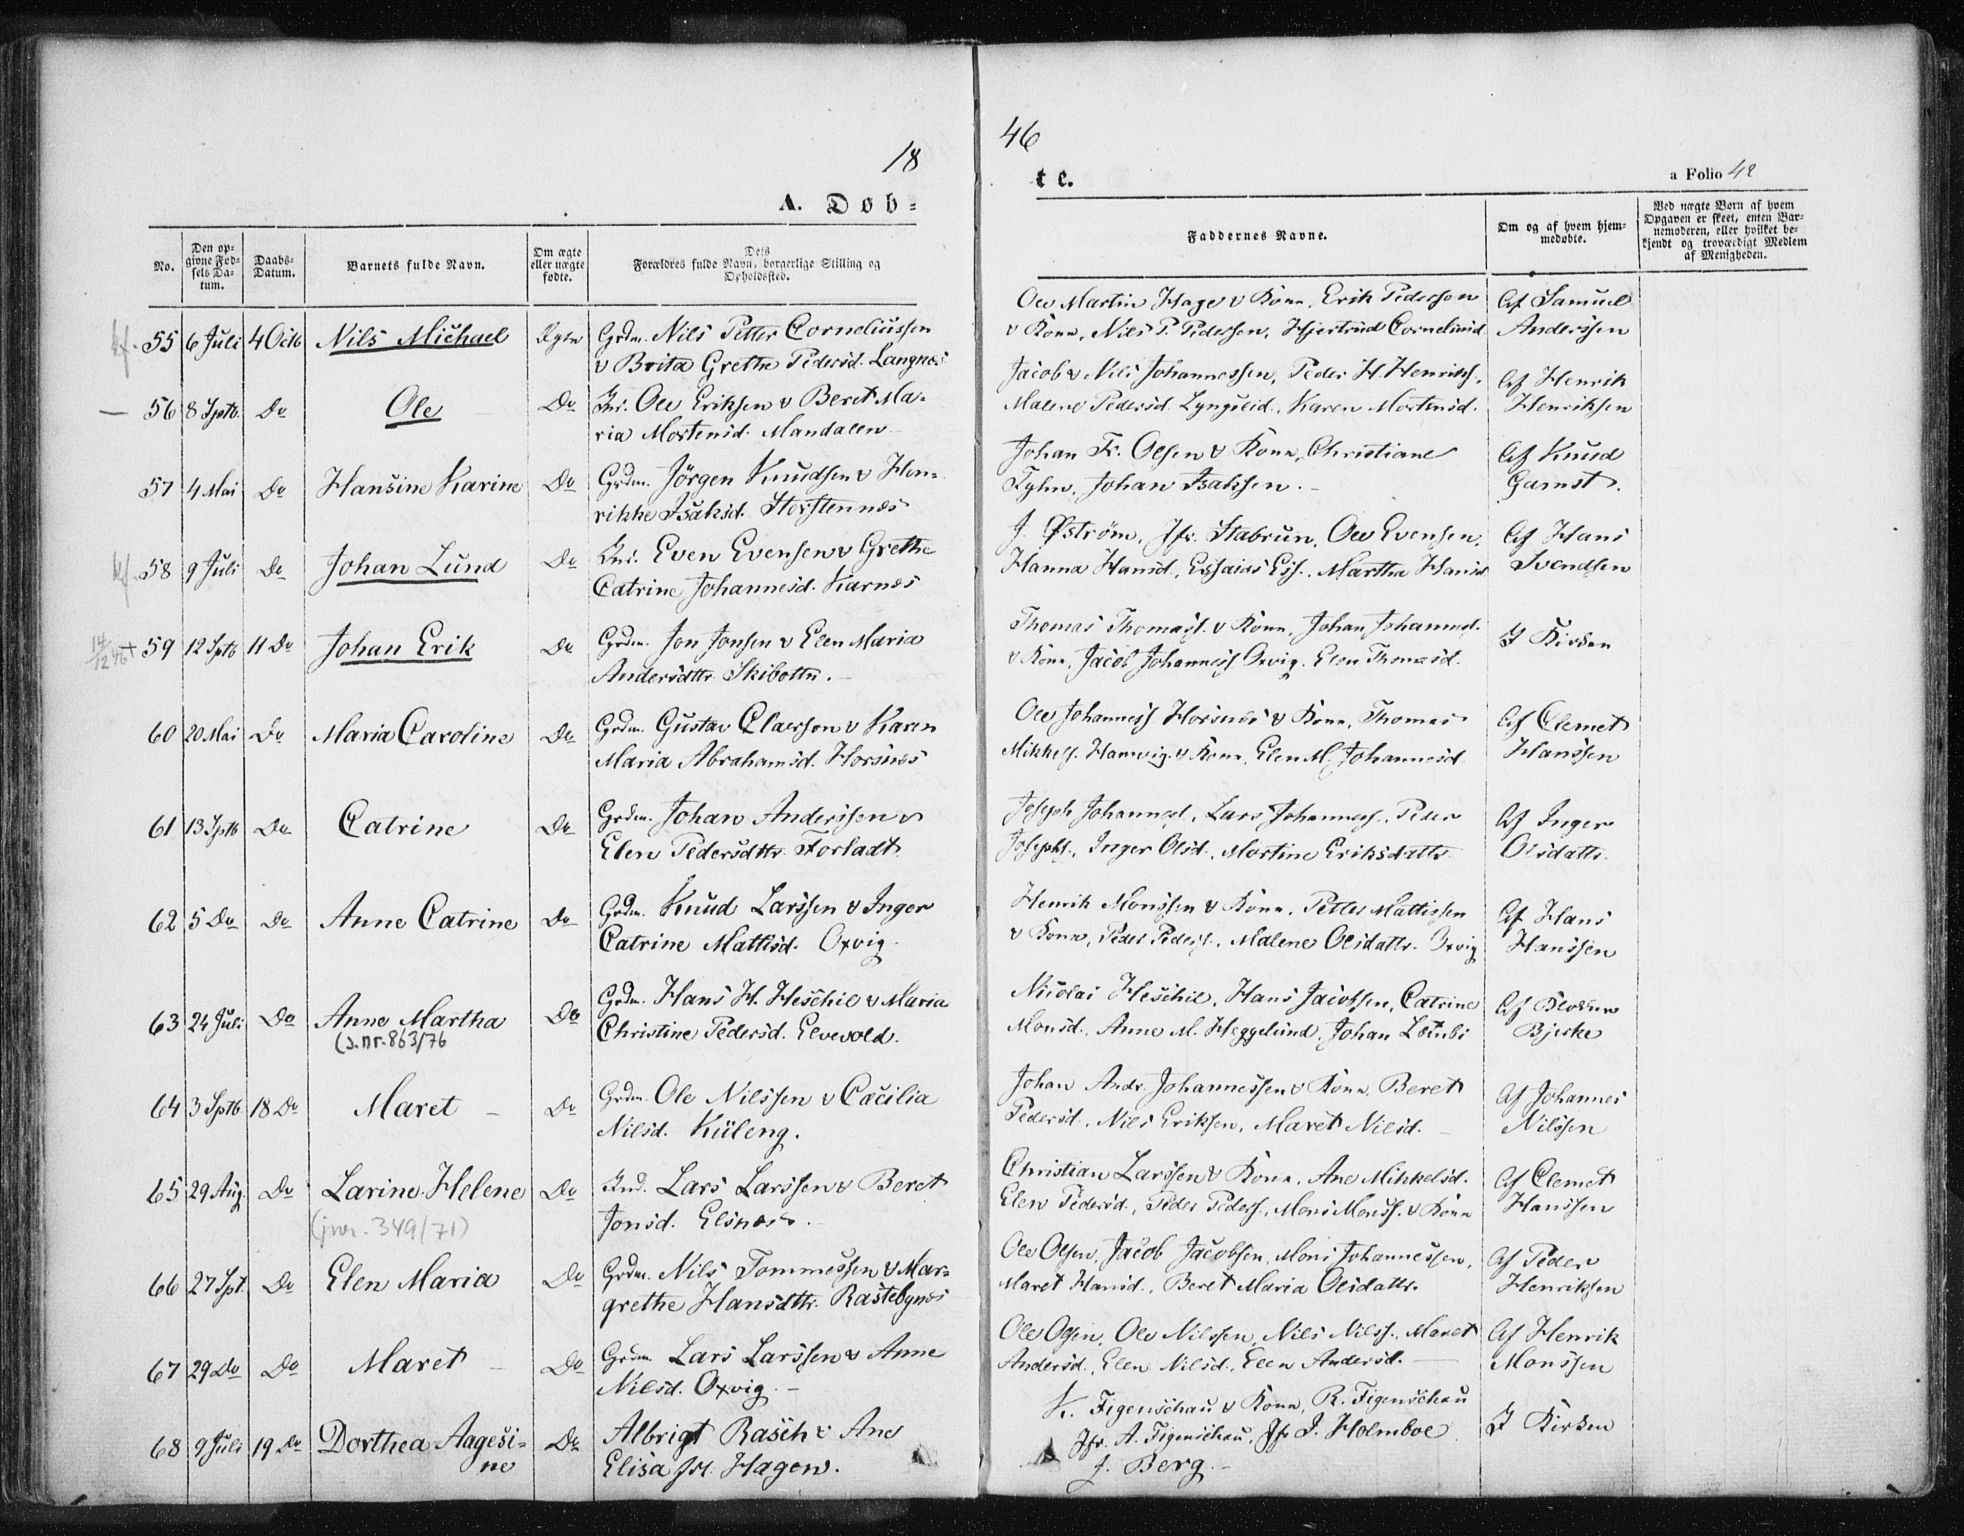 18
46
A. Døb-
te.
a Folio 42
No.
Den op-
givne Fød-
sels Da-
tum.
Daabs-
Datum.
Barnets fulde Navn.
Om ægte
eller uægte
fødte.
Dets
Forældres fulde Navn, borgerlige Stilling og
Opholdssted.
Faddernes Navne.
Om og af hvem hjem-
medøbte.
Ved uægte Børn af hvem
Opgaven er skeet, enten Bar-
nemoderen, eller hvilket be-
kjendt og troværdigt Medlem
af Menigheden.
55 6 Juli 4 Octb Nils Michael Ægte Grdm. Nils Petter Corneliussen
v Brita Grethe Pedersd. Langnæs
Ole Martin Hage v Kone, Erik Pedersen
v Kone, Nils P. Pedersen, Hjertrud Corneliusd
Af Samuel
Anderssen
56 8 Sptb. Do Ole Do Inr. Ole Eriksen v Beret Ma-
ria Mortensd. Mandalen
Jacob v Nils Johannessen, Peder H. Henriks.,
Malene Pedersd. Lyngseid, Karen Mortensd.
Af Henrik
Henriksen
57 4 Mai Do Hansine Karine Do Grdm. Jörgen Knudsen v Hen-
rikke Isaksd. Storstennæs
Johan Fr. Olsen v Kone, Christiane
Fyhn, Johan Isaksen.
Af Knud
Garnst.
58 9 Juli Do Johan Lund Do Inr. Even Evensen v Grethe
Catrine Johannesd. Karnæs
J. Østrøm, Jfr. Stabrun, Ole Evensen,
Hanna Hansd., Esaias Es., Martha Hansd
Af Hans
Svendsen
14/12 46 †
59 12 Sptb 11 Do Johan Erik Do Grdm. Jon Jonsen v Elen Maria
Andersdttr Skibotten.
Thomas Thomass. v Kone, Johan Johannes.
v Kone, Jacob Johanness. Oxvig, Elen Thomasd.
I Kirken
60 20 Mai Do Maria Caroline Do Grdm. Gustav Claessen v Karen
Maria Abrahamsd. Horsnæs
Ole Johanness. Horsnæs v Kone, Thomas
Mikkels. Hamvig v Kone, Elen M. Johannesd.
Af Clemet
Hanssen
61 13 Sptb Do Catrine Do Grdm. Johan Anderssen v
Elen Pedersdttr. Forladt
Joseph Johanness., Lars Johanness., Peder
Josephs., Inger Olsd., Martine Eriksdattr.
Af Inger
Olsdattr.
62 5 Do Do Anne Catrine Do Grdm. Knud Larssen v Inger
Catrine Mattisd. Oxvig.
Henrik Monssen v Kone, Petter Mattissen
v Kone, Peder Peders., Malene Olsdattr. Oxvig
Af Hans
Hanssen
63 24 Juli Do Anne Martha Do Grdm. Hans H. Heschil v Maria
(J.nr. 863/76
Christine Pedersd. Elvevold.
Nicolai Heschil, Hans Jacobsen, Catrine
Monsd., Anne M. Heggelund, Johan
Af Klokker
Bjerke
64 3 Sptb 18 Do Maret Do Grdm. Ole Nilssen v Cæcilia
Nilsd. Küleng.
Johan Andr. Johannessen v Kone, Beret
Pedersd., Nils Eriksen, Maret Nilsd.
Af Johannes
Nilssen
65 29 Aug. Do Larine Helene Do Ind. Lars Larssen v Beret
(jnr. 349/71)
Jonsd. Elsnæs.
Christian Larssen v Kone, Ane Mikkelsd.
Elen Pedersd., Peder Peders., Mons Monss. v Kone
Af Clemet
Hanssen
66 27 Spt. Do Elen Maria Do Grdm. Nils Tommessen v Mar-
grethe Hansdttr. Rastebynæs
Ole Olsen, Jacob Jacobsen, Mons Johannessen,
Maret Hansd., Beret Maria Olsdattr.
Af Peder
Henriksen
67 29 Do Do Maret Do Grdm. Lars Larssen v Anne
Nilsd. Oxvig.
Ole Olsen, Ole Nilssen, Nils Nilss., Maret
Andersd., Elen Nilsd., Elen Andersd.
Af Henrik
Monssen
68 9 Juli 19 Do Dorthea Aagesi-
ne
Do Albrigt Rasch v Ane
Elisa f. Hagen.
K. Figenschau v Kone, R. Figenschau
Jfr. A. Figenschau, Jfr J. Holmboe
J. Berg.
I Kirken